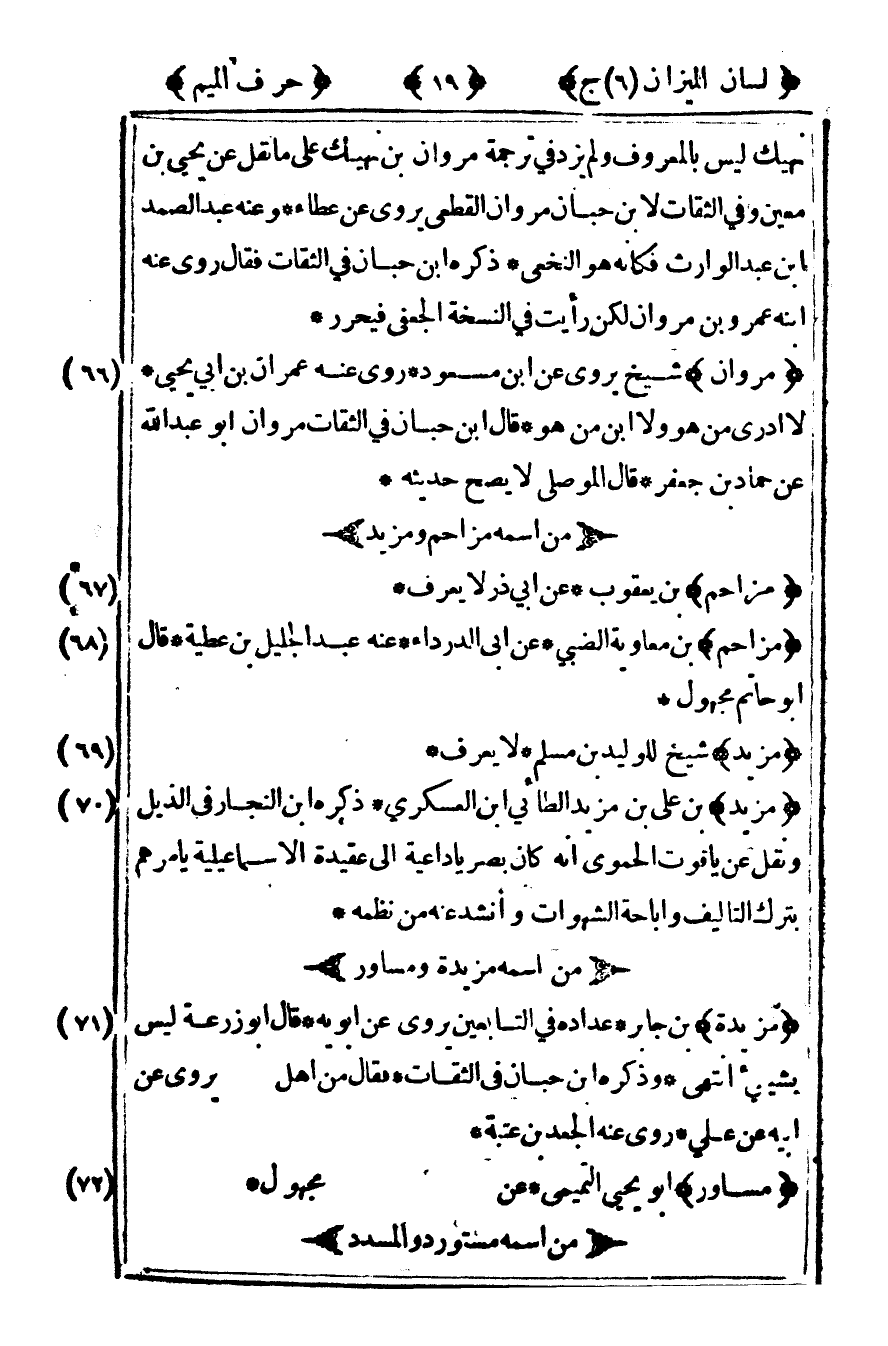 ﴿ لسان الميزان (٦)ج﴾ ﴿ ١٩ ﴾ ﴿ حرف الميم ﴾
نهيك ليس بالمعروف ولم يزد في ترجمة مروان بن نهيك على ما نقل عن يحيى بن
معين وفي الثقات لابن حبان مروان القطعى يروى عن عطاء * وعنه عبد الصمد
ابن عبد الوارث فكأنه هو النخعى * ذكره ابن حبان في الثقات فقال روى عنه
ابنه عمرو بن مروان لكن رأيت في النسخة الجعفى فيحرر *
﴿ مروان ﴾ شيخ يروى عن ابن مسعود * روى عنه عمران بن ابي يحيى * (٦٦)
لا ادرى من هو ولا ابن من هو * قال ابن حبان في الثقات مروان ابو عبد الله
عن حماد بن جعفر * قال الموصلى لا يصح حديثه *
﴿ من اسمه مزاحم ومزيد ﴾
﴿ مزاحم ﴾ بن يعقوب * عن ابي ذر لا يعرف * (٦٧)
﴿ مزاحم ﴾ بن معاوية الضبي * عن ابى الدرداء * عنه عبد الجليل بن عطية * قال (٦٨)
ابو حاتم مجهول *
﴿ مزيد ﴾ شيخ للوليد بن مسلم * لا يعرف * (٦٩)
﴿ مزيد ﴾ بن على بن مزيد الطائي ابن العسكري * ذكره ابن النجار في الذيل (٧٠)
ونقل عن ياقوت الحموى انه كان بصريا داعية الى عقيدة الاسماعيلية يامرهم
بترك التاليف واباحة الشهوات و أنشد عنه من نظمه *
﴿ من اسمه مزيدة ومساور ﴾
﴿ مزيدة ﴾ بن جابر * عداده في التابعين يروى عن ابويه * قال ابو زرعة ليس (٧١)
بشيئ انتهى * وذكره ابن حبان فى الثقات * فقال من اهل يروى عن
ابيه عن علي * روى عنه الجعد بن عتبة *
﴿ مساور ﴾ ابو يحيى التميمى * عن مجهول * (٧٢)
﴿ من اسمه مستورد والمسدد ﴾